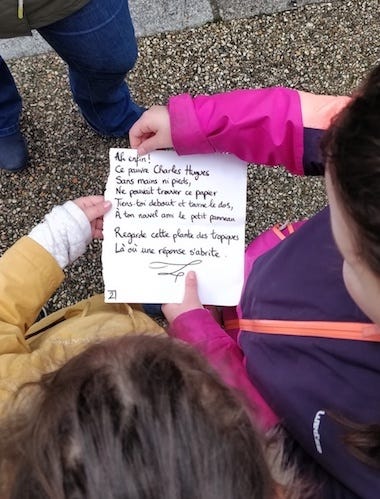 Ah enfin !
Ce pauvre Charles Hugues
Sans mains ni pieds,
Ne pouvait trouver ce papier
Tiens toi debout et tourne le dos,
À ton nouvel ami le petit panneau
Regarde cette plante des tropiques
Là où une réponse s'abrite.
2